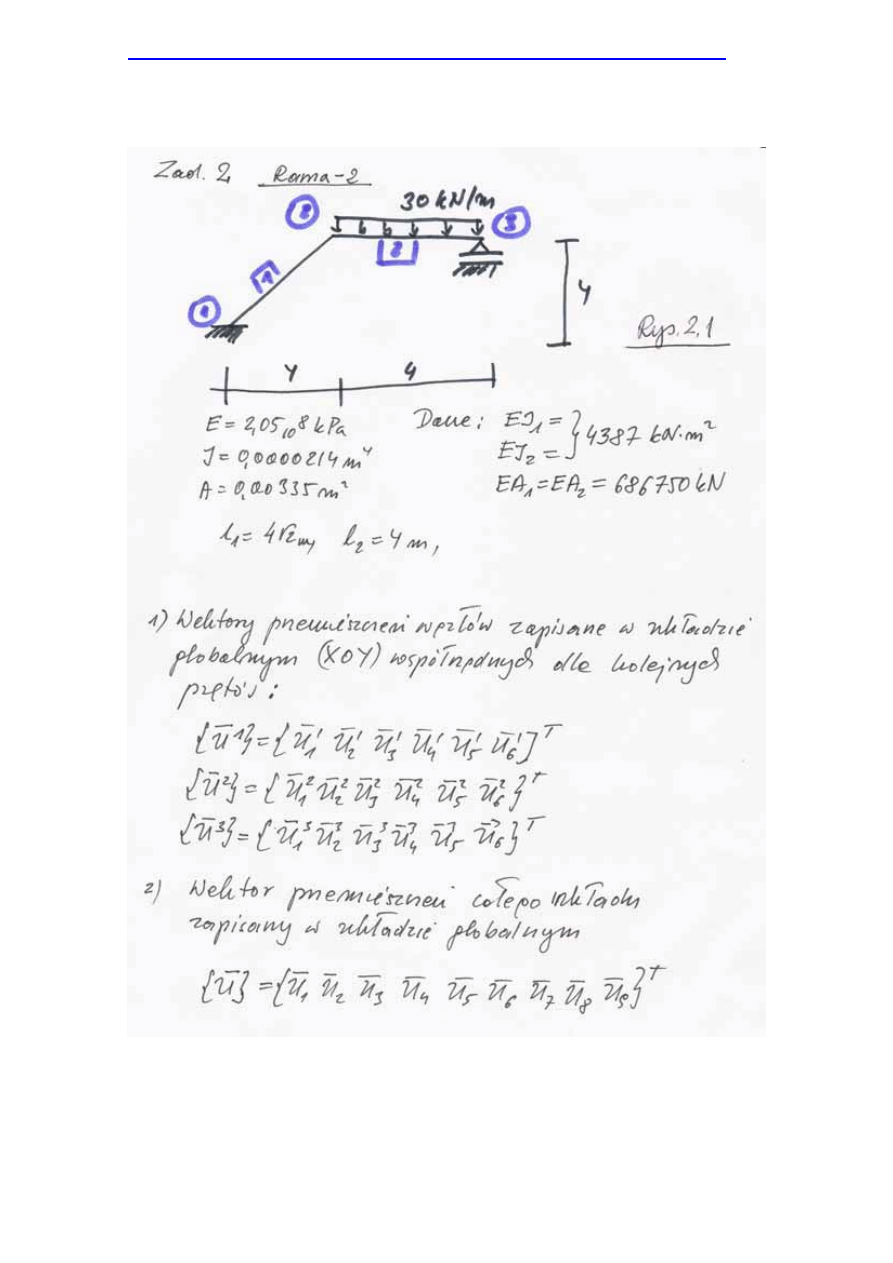 Zad. 2, Rama-2
30 kN/m
2
3
2
1
1
4
Rys. 2.1
4 4
E = 2,05₁₀8 kPa
J = 0,0000214 m⁴
A = 0,00335 m²
Dane: EJ₁ =
EJ₂ = } 4387 kN·m²
EA₁ = EA₂ = 686750 kN
l₁ = 4√2 m, l₂ = 4 m,
1) Wektory przemieszczeń węzłów zapisane w układzie
globalnym (XOY) współrzędnych dla kolejnych
prętów:
{ū¹} = {ū₁¹ ū₂¹ ū₃¹ ū₄¹ ū₅¹ ū₆¹}ᵀ
{ū²} = {ū₁² ū₂² ū₃² ū₄² ū₅² ū₆²}ᵀ
{ū³} = {ū₁³ ū₂³ ū₃³ ū₄³ ū₅³ ū₆³}ᵀ
2) Wektor przemieszczeń całego układu
zapisany w układzie globalnym
{ū} = {ū₁ ū₂ ū₃ ū₄ ū₅ ū₆ ū₇ ū₈ ū₉}ᵀ